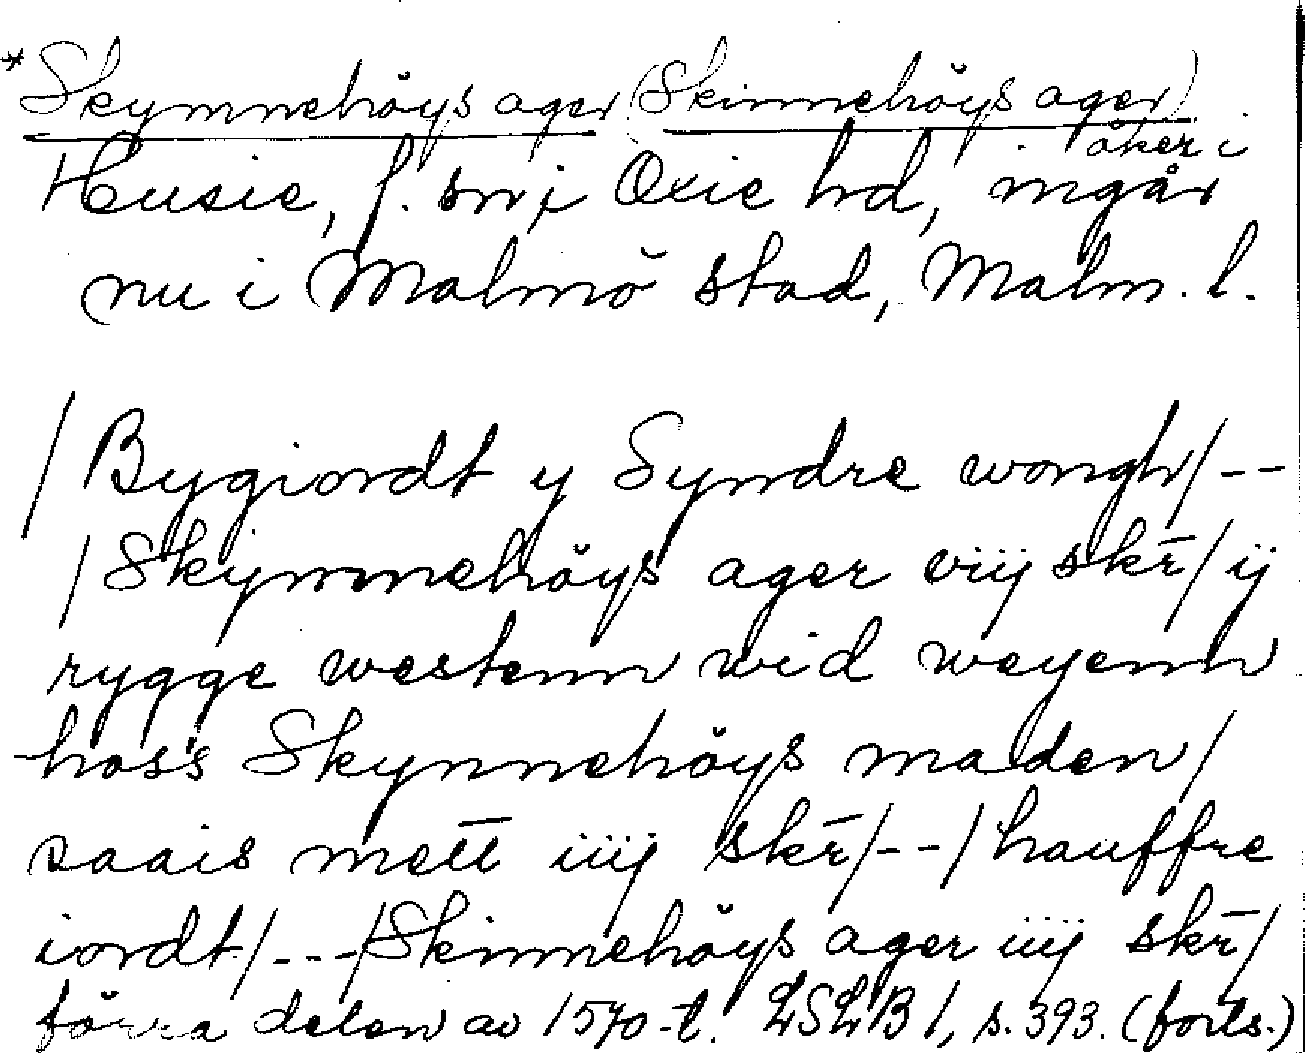 *Skymnehöys ager (Skinnehöys ager)
åker i
Husie, f. sn i Oxie hd, ingår
nu i Malmö stad, Malm. l.
/Bygiordt y Syndre wongh/--
/Skijnnnehöys ager viij skr̄/ ij
rygge westenn wid weyenn
hoss Skynnehöys maden/
saais mett iiij skr̄/--/hauffre
iordt/---/Skinnehöys ager iiij skr̄/
förra delen av 1570-t. LSLB 1, s. 393. (forts.)